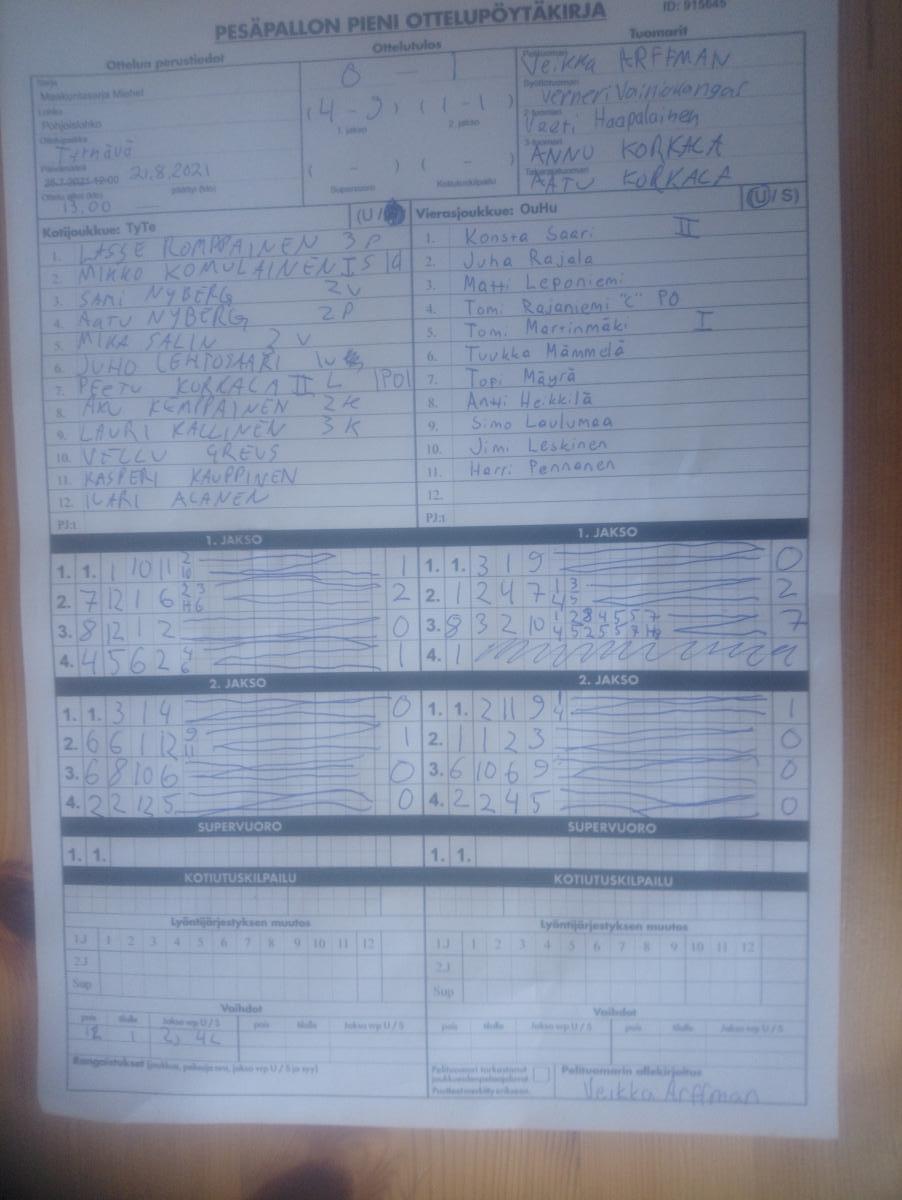 PESÄPALLON PIENI OTTELUPÖYTÄKIRJA
ID: 915645
Ottelun perustiedot
Ottelutulos
Tuomarit
Sarja
Maakuntasarja Miehet
Lohko
Pohjoislohko
Ottelupaikka
Tyrnävä
Päivämäärä
21.8.2021
13.00
0 - 1
(4-9) (1-1)
1. jakso
2. jakso
( - ) ( - )
Supervuoro
Kotiutuskilpailu
Pelituomari
Veikka ARFFMAN
Syöttötuomari
Verneri Vainiokangas
2-tuomari
Veeti Haapalainen
3-tuomari
ANNU KORKALA
Takarajatuomari
AATU KORKALA
Kotijoukkue: TyTe
1. LASSE ROMPPAINEN 3P
2. MIKKO KOMULAINEN I S
3. SAMI NYBERG 2V
4. AATU NYBERG 2P
5. MIKA SALIN 3 V
6. JUHO LEHTOSAARI
7. PEETU KORKALA II L PO
8. AKU KEMPPAINEN 2K
9. LAURI KALLINEN 3K
10. VELLU GREUS
11. KASPERI KAUPPINEN
12. ILARI ALANEN
PJ:t
Vierasjoukkue: OuHu (U/S)
1. Konsta Saari II
2. Juha Rajala
3. Matti Leponiemi
4. Tomi Rajaniemi "C" PO
5. Tomi Martinmäki I
6. Tuukka Mämmelä
7. Topi Mäyrä
8. Antti Heikkilä
9. Simo Laulumaa
10. Jimi Leskinen
11. Harri Pennanen
12.
PJ:t
1. JAKSO
1. 1. 1 10 11 2 10 1
2. 7 12 1 6 2 3 4 6 2
3. 8 12 1 2 0
4. 4 5 6 2 4 6 1
1. JAKSO
1. 1. 3 1 9 0
2. 1 2 4 7 1 3 4 5 2
3. 8 3 2 10 7
4. 1
2. JAKSO
1. 1. 3 1 4 0
2. 6 6 1 12 9 11 1
3. 6 8 10 6 0
4. 2 2 12 5 0
2. JAKSO
1. 1. 2 11 9 1 4 1
2. 1 1 2 3 0
3. 6 10 6 9 0
4. 2 2 4 5 0
SUPERVUORO
1. 1.
SUPERVUORO
1. 1.
KOTIUTUSKILPAILU
KOTIUTUSKILPAILU
Lyöntijärjestyksen muutos
1J 1 2 3 4 5 6 7 8 9 10 11 12
2J
Sup
Lyöntijärjestyksen muutos
1J 1 2 3 4 5 6 7 8 9 10 11 12
2J
Sup
Vaihdot
pois tilalle Jakso vrp U / S pois tilalle Jakso vrp U / S
12 1
Vaihdot
pois tilalle Jakso vrp U / S pois tilalle Jakso vrp U / S
Rangaistukset (joukkue, pelaaja nro, jakso vrp U / S ja syy)
Pelituomari tarkastanut
Pelituomarin allekirjoitus
Veikka Arffman